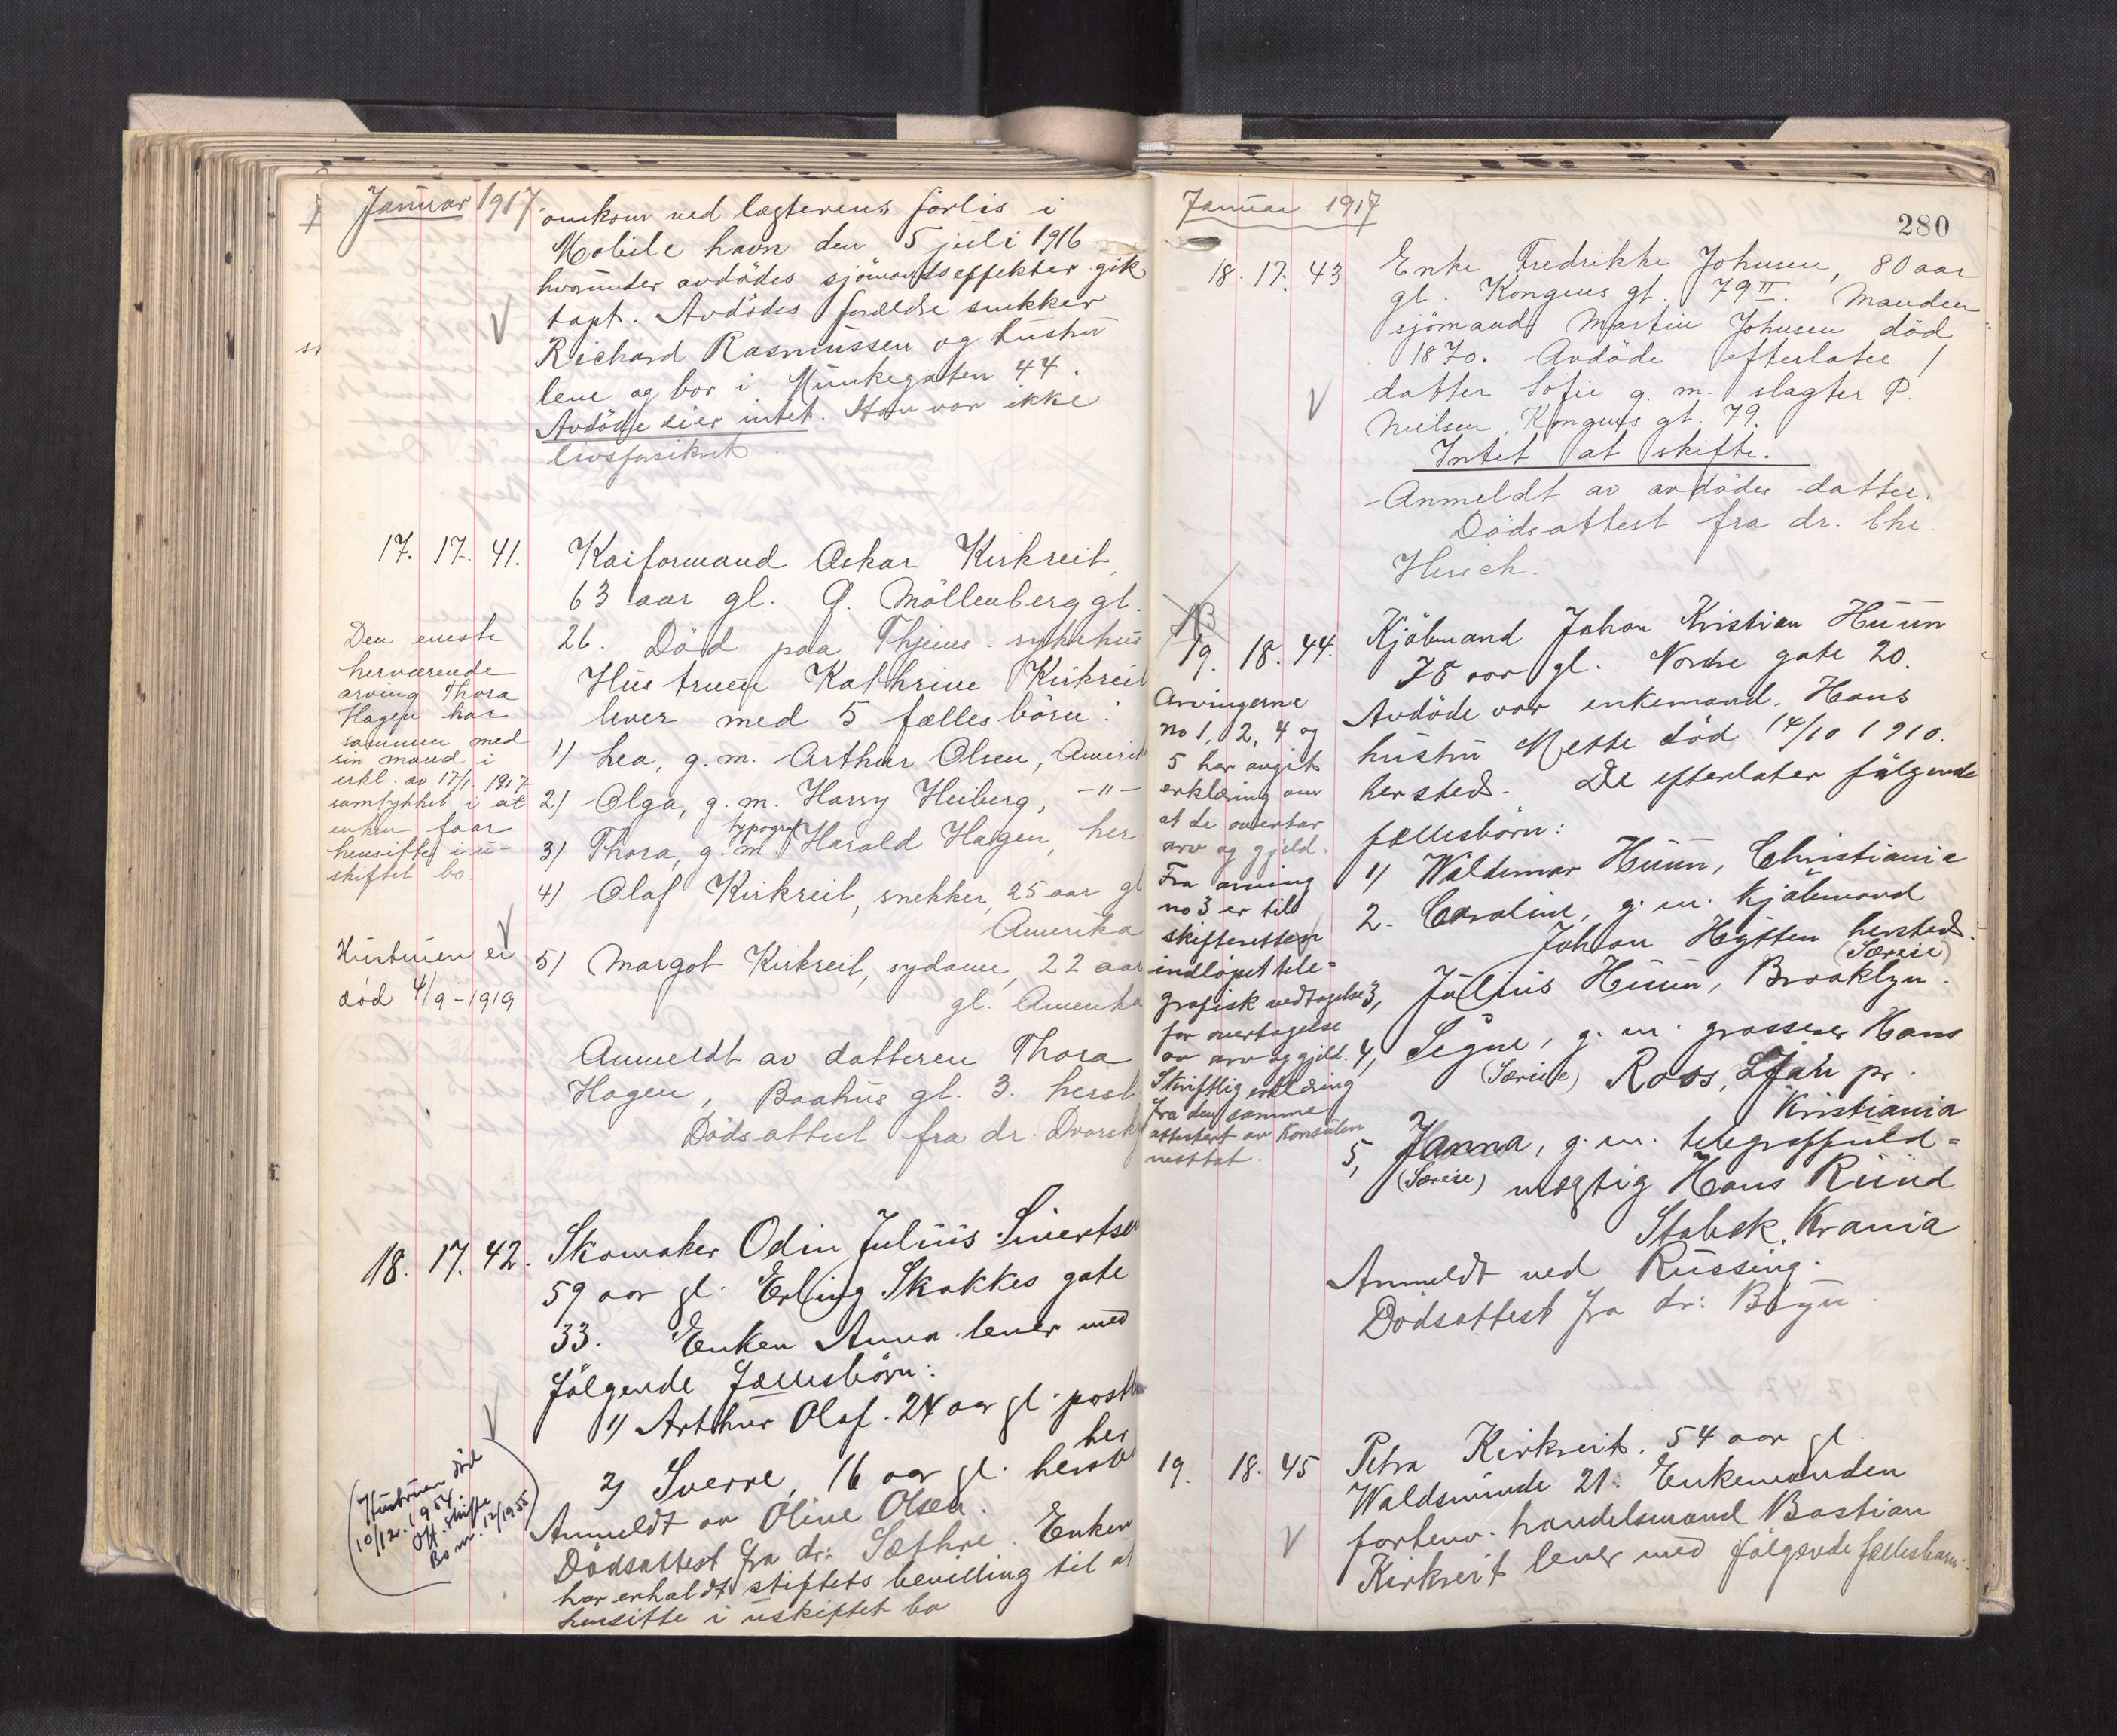 Januar 1917
omkom ved lægterens forlis i
Mobile havn den 5 juli 1916
hvorunder avdödes sjömandseffekter gik
tapt. Avdödes forældre snekker
Richard Rasmussen og hustru
leve og bor i Munkegaten 44.
Avdöde eier intet. Han var ikke
livsforsikret.
17. 17. 41. Kaiformand Oskar Kirkreit,
63 aar gl. Ö. Möllenberg gt.
26. Död paa Thjems sykehus
Hustruen Kathrine Kirkreit
lever med 5 fællesbörn:
1) Lea, g.m. Arthur Olsen, Amerik
2) Olga, g.m. Harry Heiberg, -"-
3) Thora, g.m. typograf Harald Hagen, her
4) Olaf Kirkreit, snekker, 25 aar gl
Amerika
5) Margot Kirkreit, sydame, 22 aar
gl. Amerika
Anmeldt av datteren Thora
Hagen, Baahus gt. 3. herst
Dödsattest fra dr. Dvorsky
Den eneste
herværende
arving Thora
Hagen har
sammen med
sin mand i
erkl. av 17/1 1917
samtykket i at
enken faar
hensitte i u-
skiftet bo.
Hustruen er
död 4/9-1919
18. 17. 42. Skomaker Odin Julius Sivertsen
59 aar gl. Erling Skakkes gate
33. Enken Anna lever med
fölgende fællesbörn:
1) Arthur Olaf. 24 aar gl. postb
her
2) Sverre, 16 aar gl. herste
Anmeldt av Oline Olsen.
Dödsattest fra dr: Sæthre. Enken
har erholdt stiftets bevilling til at
hensitte i uskiftet bo
(Hustruen död
10/12. 1954.
Off. skifte
Bo nr. 12/1955)
Januar 1917
280
18. 17. 43. Enke Fredrikke Johnsen, 80 aar
gl. Kongens gt. 79 II. Manden
sjömand Martin Johnsen död
1870. Avdöde efterlater 1
datter Sofie g. m. slagter P.
Nielsen, Kongens gt. 79.
Intet at skifte.
Anmeldt av avdödes datter.
Dödsattest fra dr. Chr.
Hirsch.
19. 18. 44. Kjöbmand Johan Kristian Huun
78 aar gl. Nordre gate 20.
Avdöde var enkemand. Hans
hustru Mette död 14/10 1910.
hersteds. De efterlater fölgende
fællesbörn:
1) Waldemar Huun, Christiania
2. Caroline, g. m. kjöbmand
Johan Hytten hersteds.
(Særeie)
3, Julius Huun, Brooklyn.
4, Signe, g. m. grosserer Hans
(Særeie) Ross, Ljan pr.
Kristiania
5, Hanna, g. m. telegraffuld=
(Særeie) mægtig Hans Rund
Stabek, Krania
Anmeldt ved Russing.
Dödsattest fra dr: Bryn.
Arvingerne
no 1, 2, 4 og
5 har avgit
erklæring om
at de overtar
arv og gjeld.
Fra arving
no 3 er til
skifteretten
indlöpet tele-
grafisk vedtagelse
for overtagelse
av arv og gjeld.
Skriftlig erklæring
fra den samme
attestert av konsulen
mottat.
19. 18. 45 Petra Kirkreit. 54 aar gl.
Waldsminde 21. Enkemanden
forhenv. handelsmand Bastian
Kirkreit lever med fölgende fællesbarn: